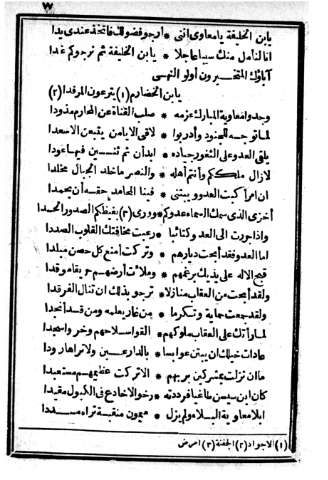 ٧
يابن الخليفة يامعاوى اننى * ارجو فضولك فاتخذ عندى يدا
انا لنامل منك سيبا عاجلا * يابن الخليفة ثم نرجوكم غدا
آباؤك المتخيرون أولو النهى
يابن الخضارم (١) يترعون المرفدا (٢)
وجدوا معاوية المبارك عزمه * صلب القناة عن المحارم مذودا
لما توجه للجنود وأدربوا * لاقى الايامن يتبعن الاسعدا
يلقى العدو على الثغور جياده * ابدأن ثم ثنين فيها عودا
لازال ملككم وأنتم أهله * والنصر ماخلد الجبال مخلدا
ان امرأ كبت العدو ويبتنى * فينا المحامد حقه أن يحمدا
أخزى الذى سمك السماء عدوكم * وورى (٣) بغيظكم الصدور الحسدا
واذا جررت الى العدو كتائبا * رعبت مخافتك القلوب الصددا
اما العدو فقد أبحت ديارهم * وتركت أمنع كل حصن مبلدا
فتح الاله على يديك برغمهم * وملأت أرضهم حريقا موقدا
ولقد أبحت من العقاب منازلا * ترجو بذلك ان تنال الفرقدا
ولقد جمعت حماية وتكرما * من غار يعلمه ومن قد أنجدا
لما رأتك على العقاب ملوكهم * القوا سلاحهم وخروا سجدا
عادات خيلك ان يبتن عوابسا * بالدارعين ولا تراها رودا
ما ان نزلت بمشركين بربهم * الا تركت عظيمهم مستعبدا
كان ابن سيسن طاغيا فرددته * رخو الاخادع فى الكبول مقيدا
ابلا معاوية البلاء ولم يزل * ميمون منقبة تراه مسددا
(١) الاجواد (٢) الجفنة (٣) امرض